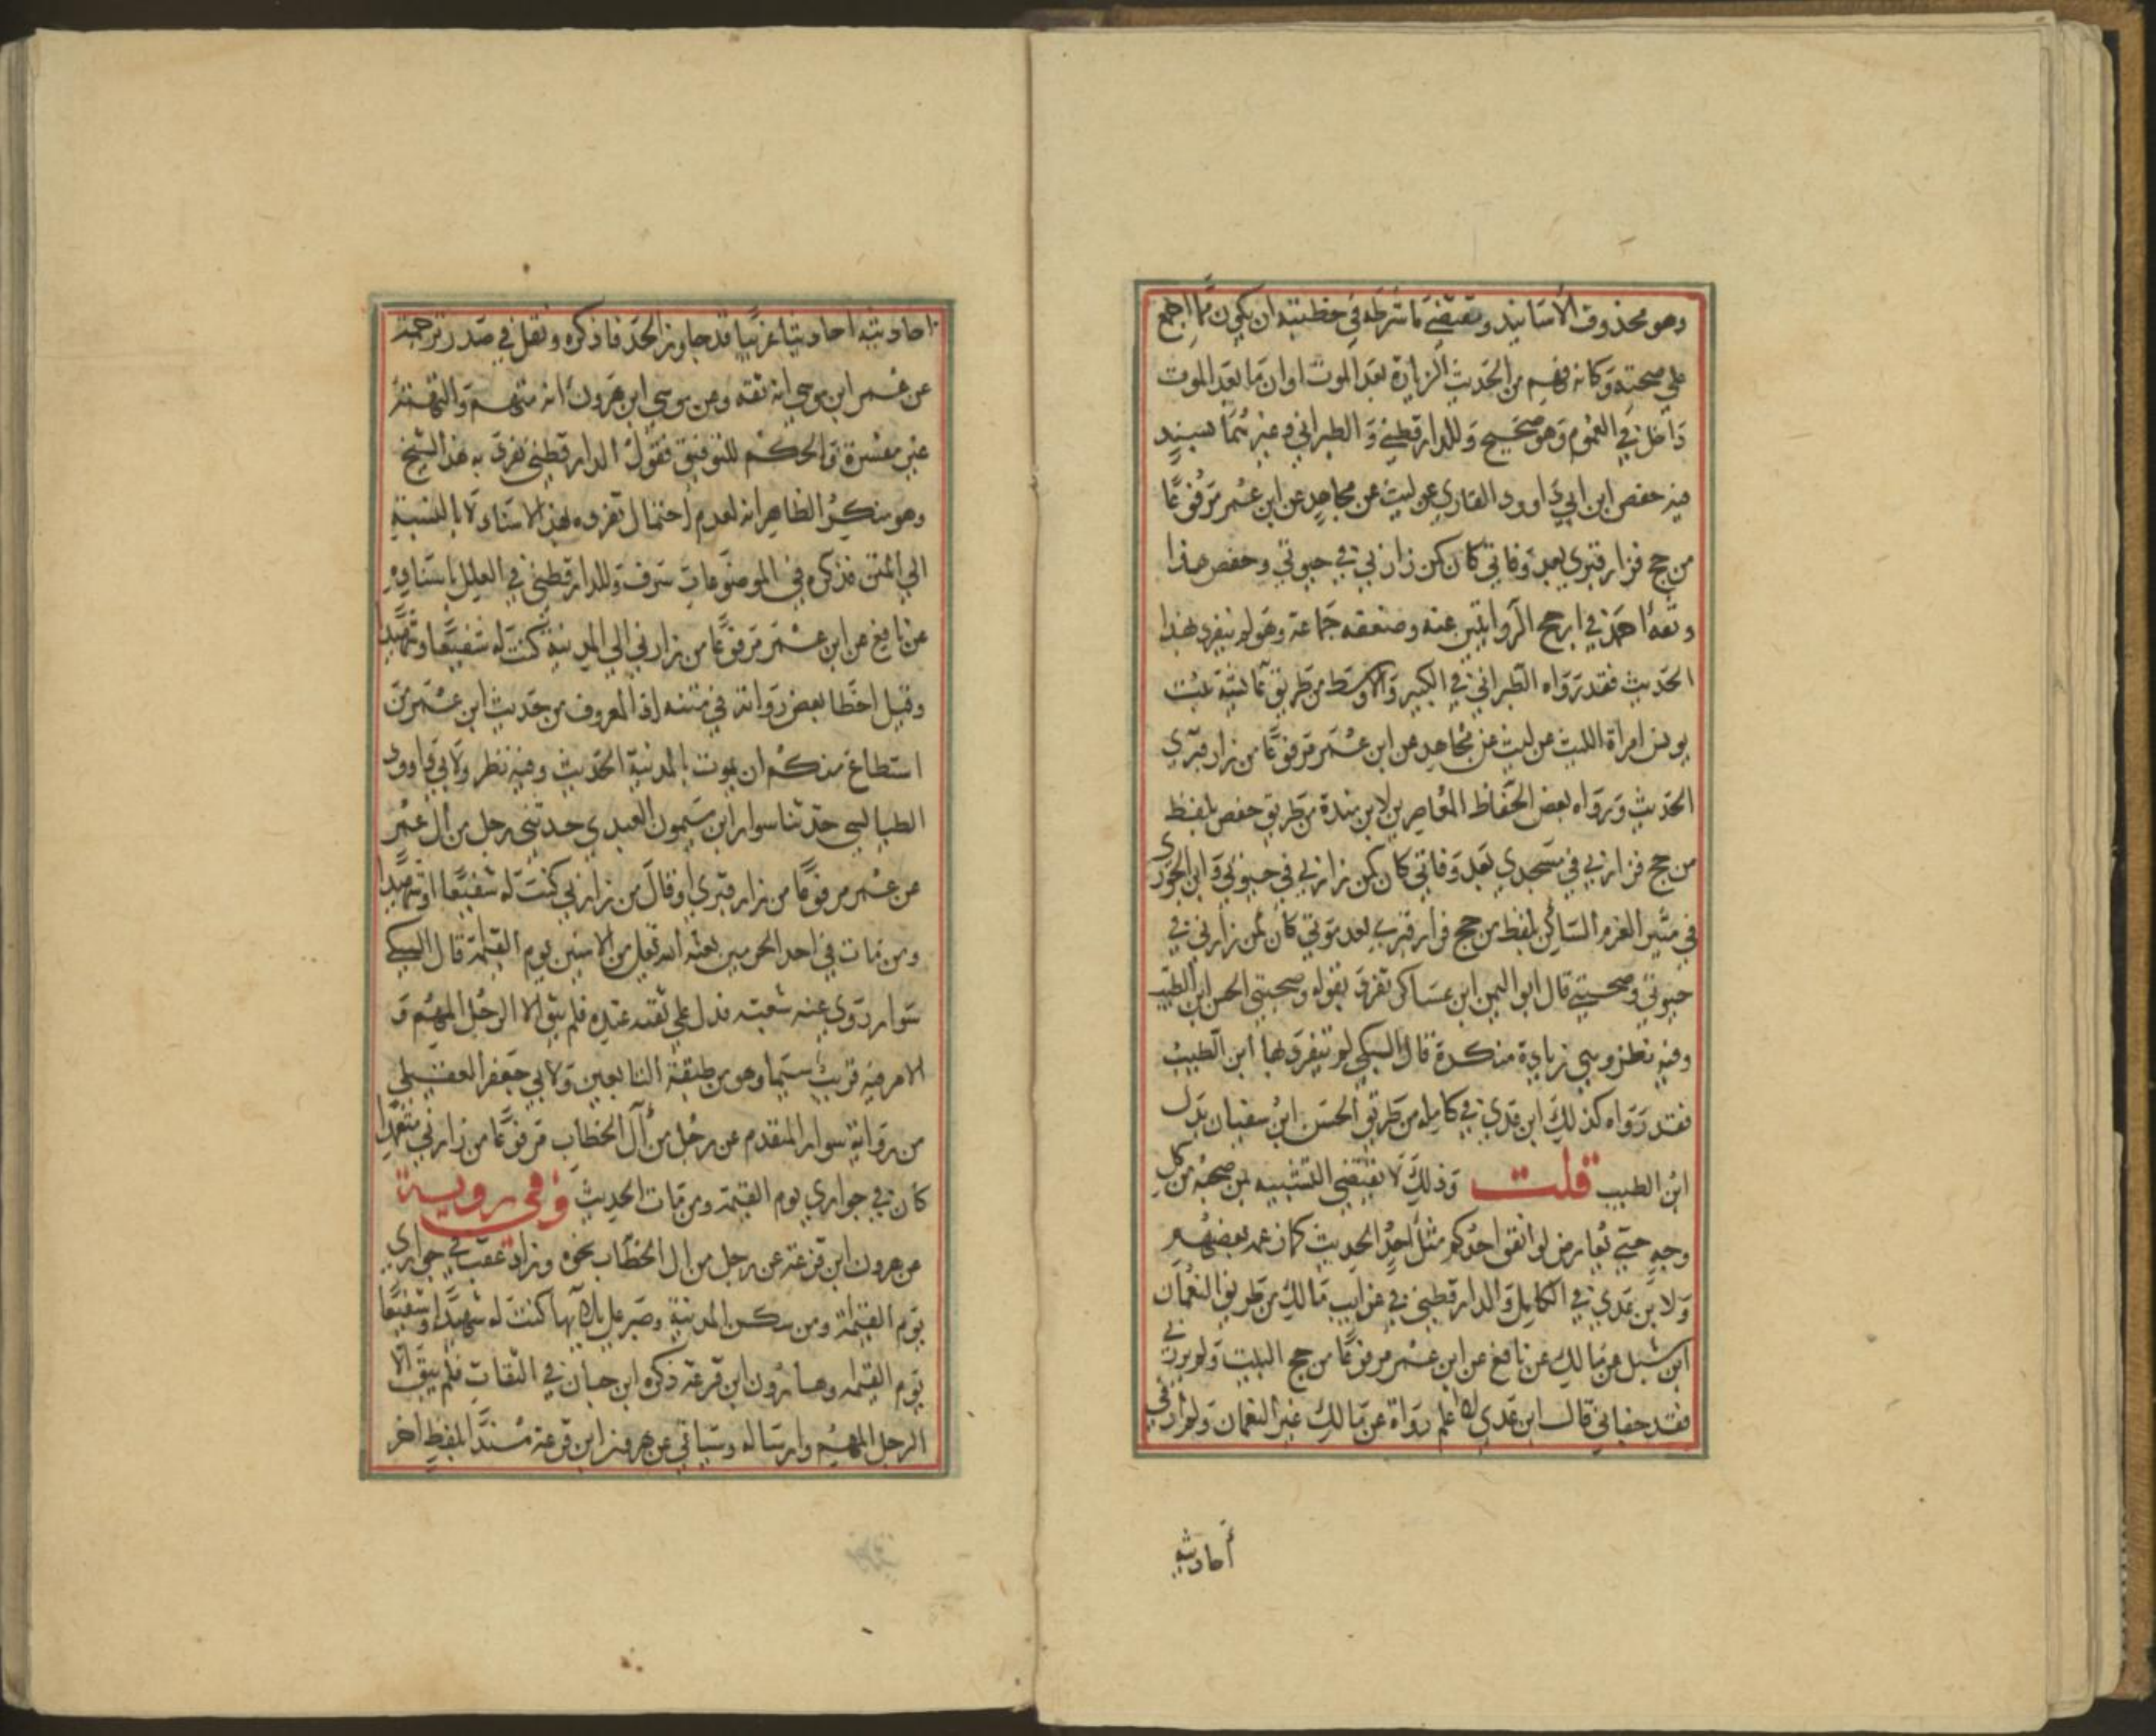 وهو محذوف الأسانيد ويقتضي ما شرطه في خطبته ان يكون مما اجمع
علي صحته وكانه فهم من الحديث الزيارة بعد الموت او ان ما بعد الموت
داخل في العموم وهو صحيح وللدارقطني والطبراني وغيرهما بسند
فيه حفص ابن ابي داوود القاري عن ليث عن مجاهد عن ابن عمر مرفوعًا
من حج فزار قبري بعد وفاتي كان كمن زارني في حيوتي وحفص هذا
وثقه احمد في ارجح الروايتين عنه وضعفه جماعة وهو لم ينفرد بهذا
الحديث فقد رواه الطبراني في الكبير والاوسط من طريق عائشة بنت
يونس امرأة الليث عن ليث عن مجاهد عن ابن عمر مرفوعًا من زار قبري
الحديث ورواه بعض الحفاظ المعاصرين لابن مندة من طريق حفص بلفظ
من حج فزارني في مسجدي بعد وفاتي كان كمن زارني في حيوتي وابن الجوزي
في مثير الغرم الساكن بلفظ من حج فزار قبري بعد موتي كان كمن زارني في
حيوتي وصحبتي قال ابو اليمن ابن عساكر تفرد بقوله وصحبتي الحسن ابن الطيب
وفيه نظر وهي زيادة منكرة قال السبكي لم ينفرد بها ابن الطيب
فقد رواه كذلك ابن عدي في كامله من طريق الحسن ابن سفيان بدل
ابن الطيب قلت وذلك لا يقتضي التشبيه بمن صحبه من كل
وجه حتي يعارض لو انفق احدكم مثل احد الحديث كما زعمه بعضهم
ولابن عدي في الكامل والدارقطني في غرايب مالك من طريق النعمان
ابن شبل عن مالك عن نافع عن ابن عمر مرفوعًا من حج البيت ولم يزرني
فقد جفاني قال ابن عدي لا اعلم رواه عن مالك غير النعمان ولم أر في
أحاديثه
احاديثه احاديثا غريبا قد جاوز الحد فاذكره ونقل في صدر ترجمته
عن عمر ابن موسي انه ثقه وعن موسي ابن هرون أنه متهم والتهمة
غير مفسرة والحكم للتوفيق فقول الدارقطني تفرد به هذا الشيخ
وهو منكر الظاهر انه لعدم احتمال تفرده بهذا الاسناد لا بالنسبة
الي المتن فذكره في الموضوعات سرف وللدارقطني في العلل باسناده
عن نافع عن ابن عمر مرفوعًا من زارني الي المدينة كنت له شفيعًا وشهيدا
وقيل اخطا بعض رواته في متنه اذ المعروف من حديث ابن عمر من
استطاع منكم ان يموت بالمدينة الحديث وفيه نظر ولابي داوود
الطيالسي حدثنا سوار ابن ميمون العبدي حدثني رجل من آل عمر
عن عمر مرفوعًا من زار قبري أو قال من زارني كنت له شفيعًا او شهيدا
ومن مات في احد الحرمين بعثه الله من الامنين يوم القيمة قال السبكي
سوار روي عنه شعبه فدل علي ثقته عنده فلم يبق الا الرجل المبهم و
الامر فيه قريب سيما وهو من طبقة التابعين ولابي جعفر العقيلي
من رواية سوار المتقدم عن رجل من آل الخطاب مرفوعًا من زارني متعمدا
كان في جواري يوم القيمة ومن مات الحديث وفي روية
عن هرون ابن قزعة عن رجل من ال الخطاب نحوه وزاد عقب في جواري
يوم القيمة ومن سكن المدينة وصبر علي بلايها كنت له شهيدًا وشفيعًا
يوم القيمه وهارون ابن قزعة ذكره ابن حبان في الثقات فلم يبق الا
الرجل المبهم وارساله وسياتي عن هرون ابن قزعة مسندًا بلفظ اخر